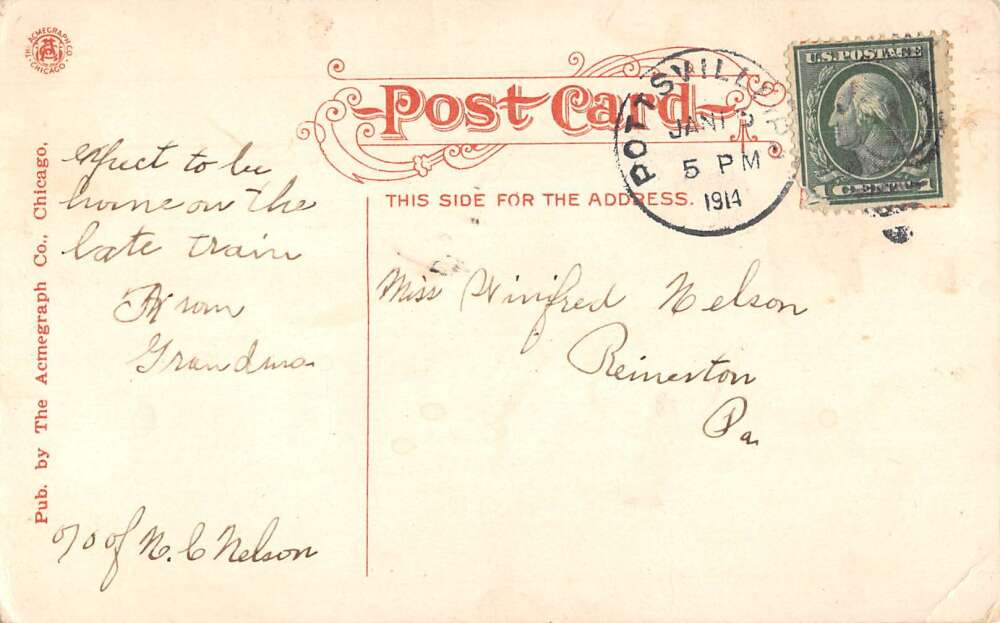 THE ACMEGRAPH CO.
CHICAGO
Post Card
THIS SIDE FOR THE ADDRESS.
POTTSVILLE, PA
JAN
5 PM
1914
U.S. POSTAGE
1 CENT 1
Pub. by The Acmegraph Co., Chicago.
expect to be
home on the
late train
From
Grandma
c/o of N. C Nelson
Miss Winifred Nelson
Reinerton
Pa